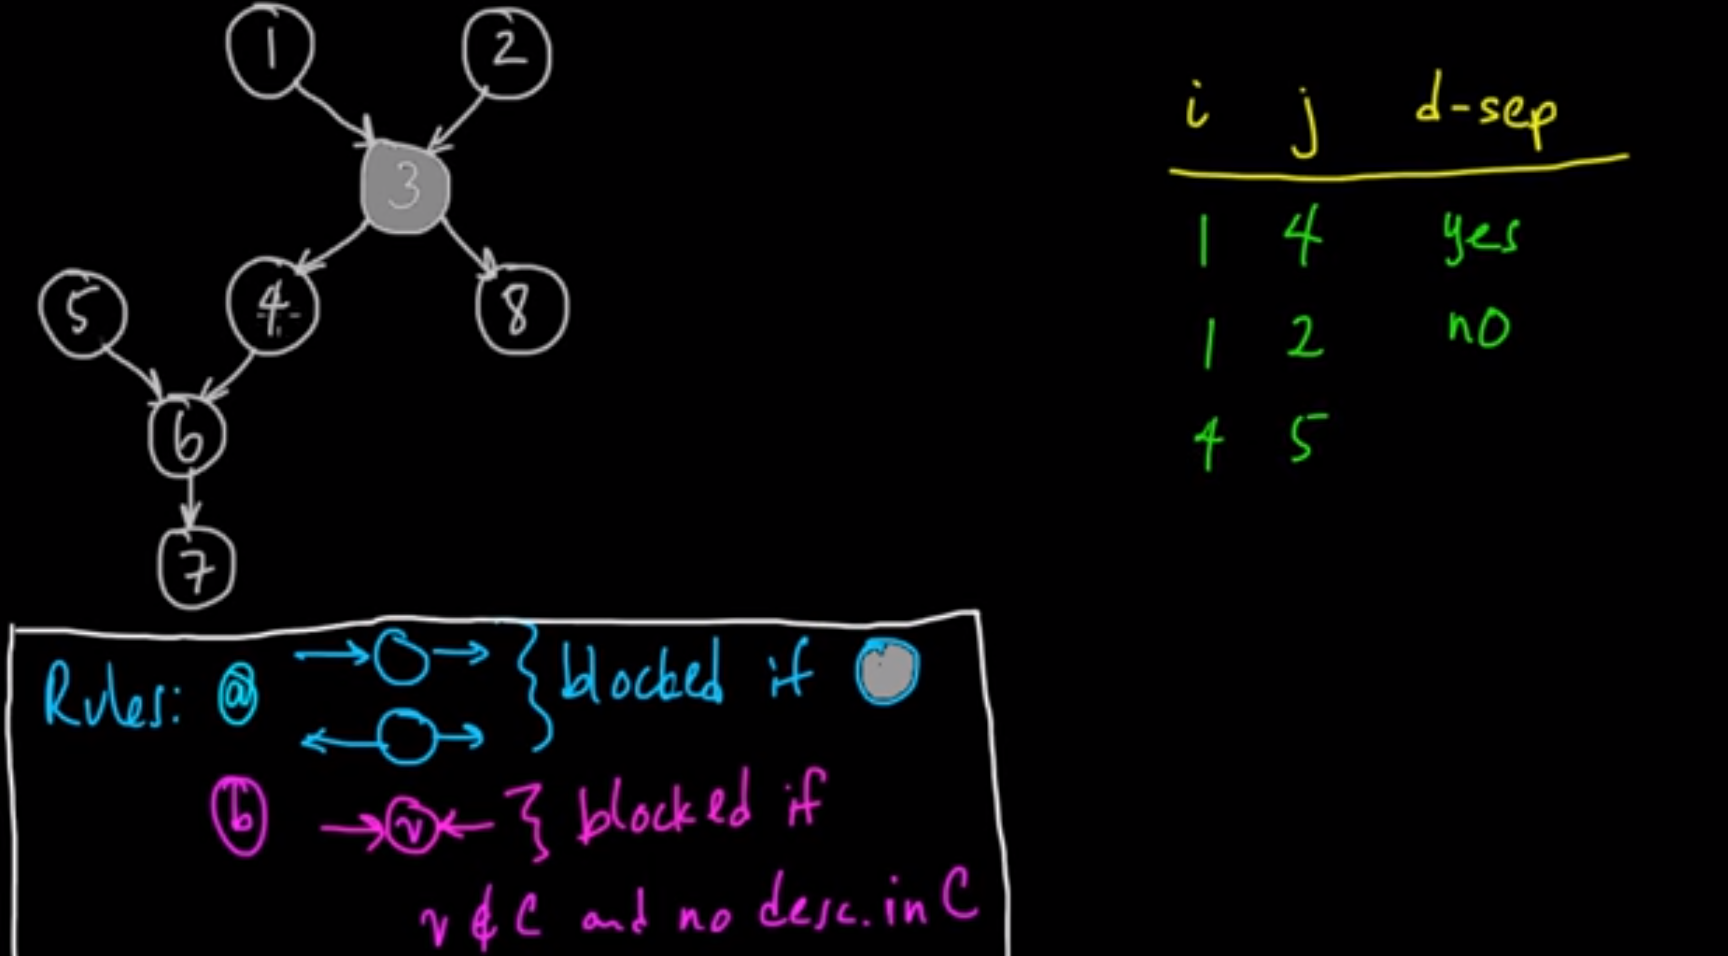 1 2
3
5 4 8
6
7
i j d-sep
1 4 yes
1 2 no
4 5
Rules: ⓐ → ○ → } blocked if
← ○ →
ⓑ → v ← } blocked if
v ∉ C and no desc. in C